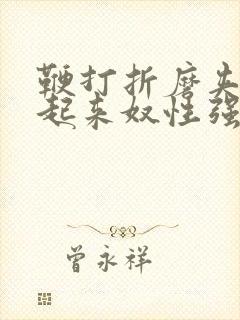 鞭打折磨夹
起来奴性强
曾永祥